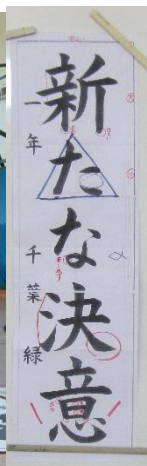 新たな決意
一年 千葉緑